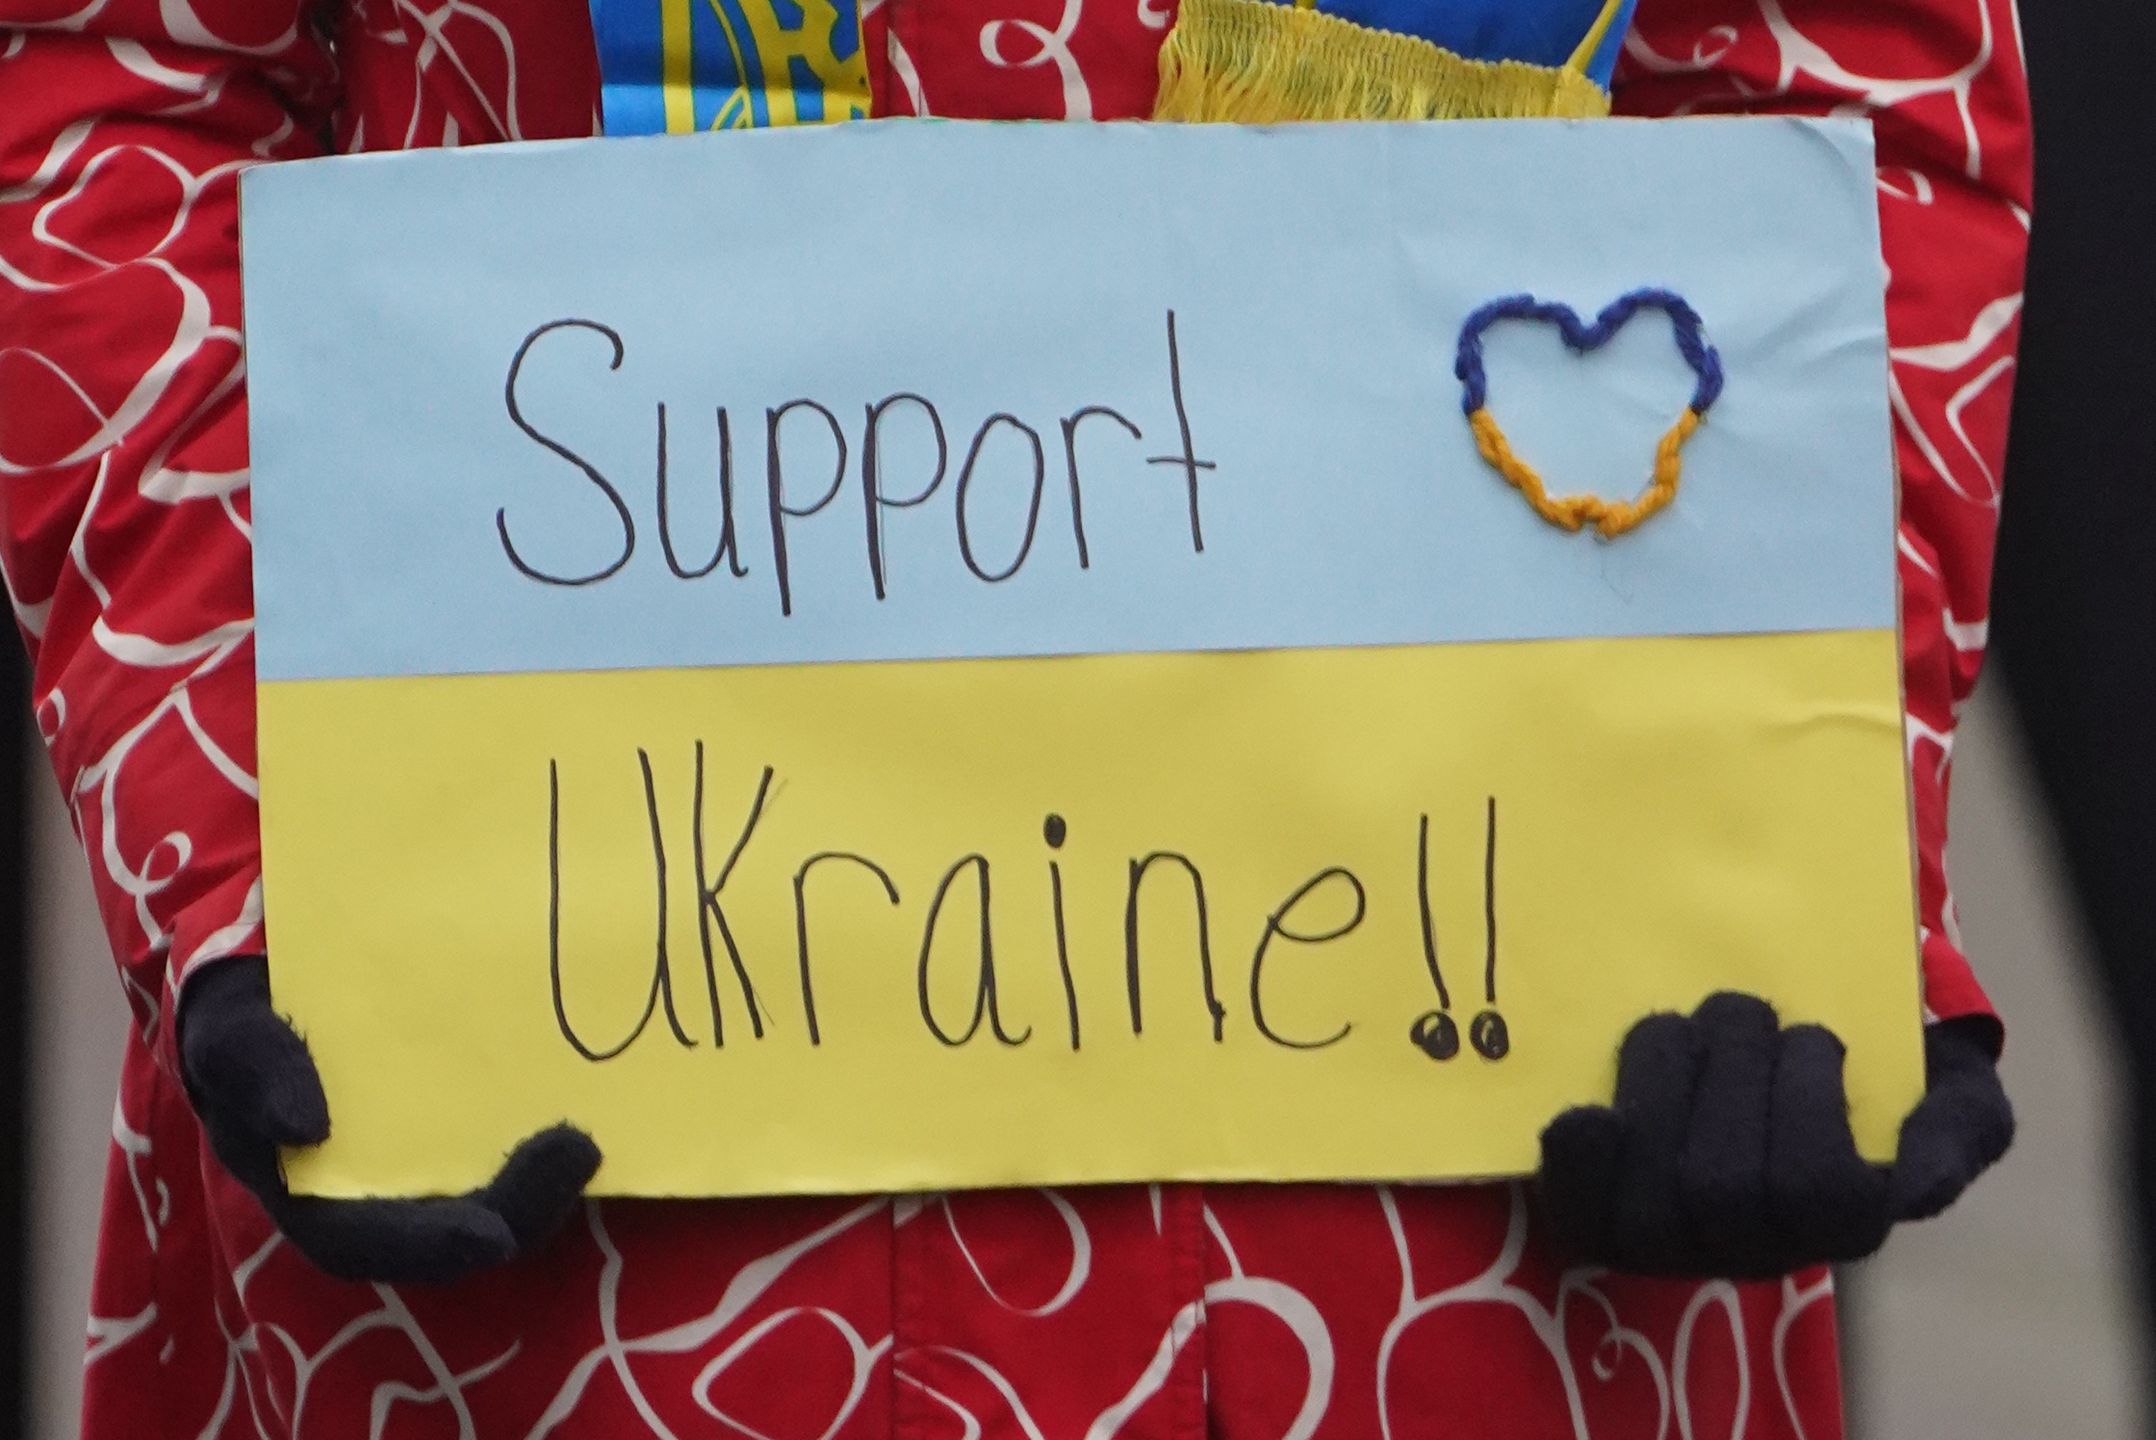 Support
Ukraine!!